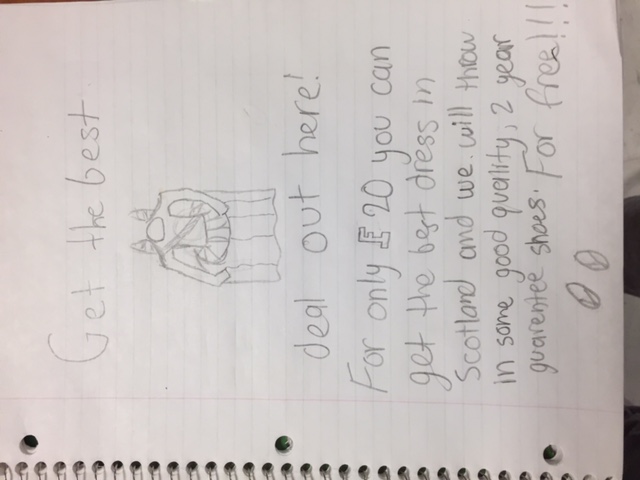 Get the best
deal out here!
For only £20 you can
get the best dress in
Scotland and we will throw
in some good quality, 2 year
guarentee shoes. For free!!!